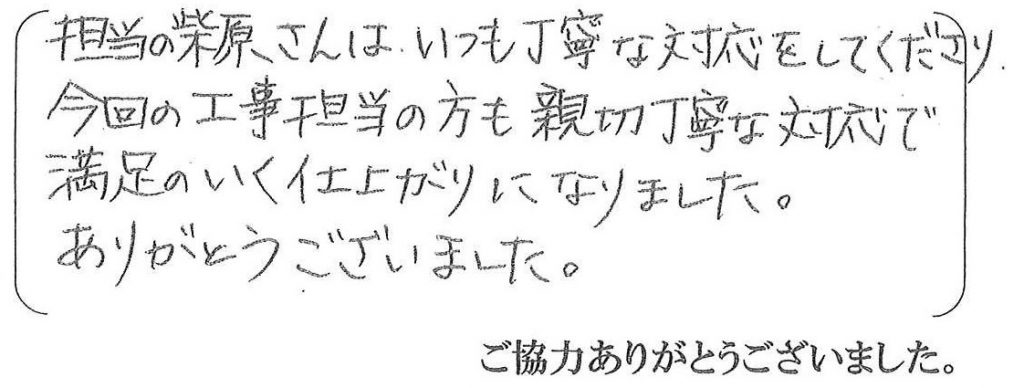 担当の柴原さんは、いつも丁寧な対応をしてくださり、
今回の工事担当の方も親切丁寧な対応で
満足のいく仕上がりになりました。
ありがとうございました。
ご協力ありがとうございました。